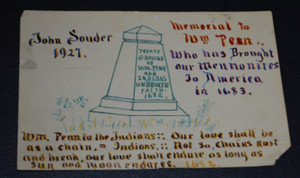 John Souder
1927.
Memorial to
Wm Penn.
Who has Brought
our Mennonites
To America
in 1683.
TREATY
GROUND
OF
WM. PENN
AND
INDIANS
UNBROKEN
FAITH
1682.
Wm. Penn to the Indians:: Our love shall be
as a chain, = Indians,:: Not So, Chains Rust
and break, our love shall endure as long as
Sun and Moon endures. 1682.